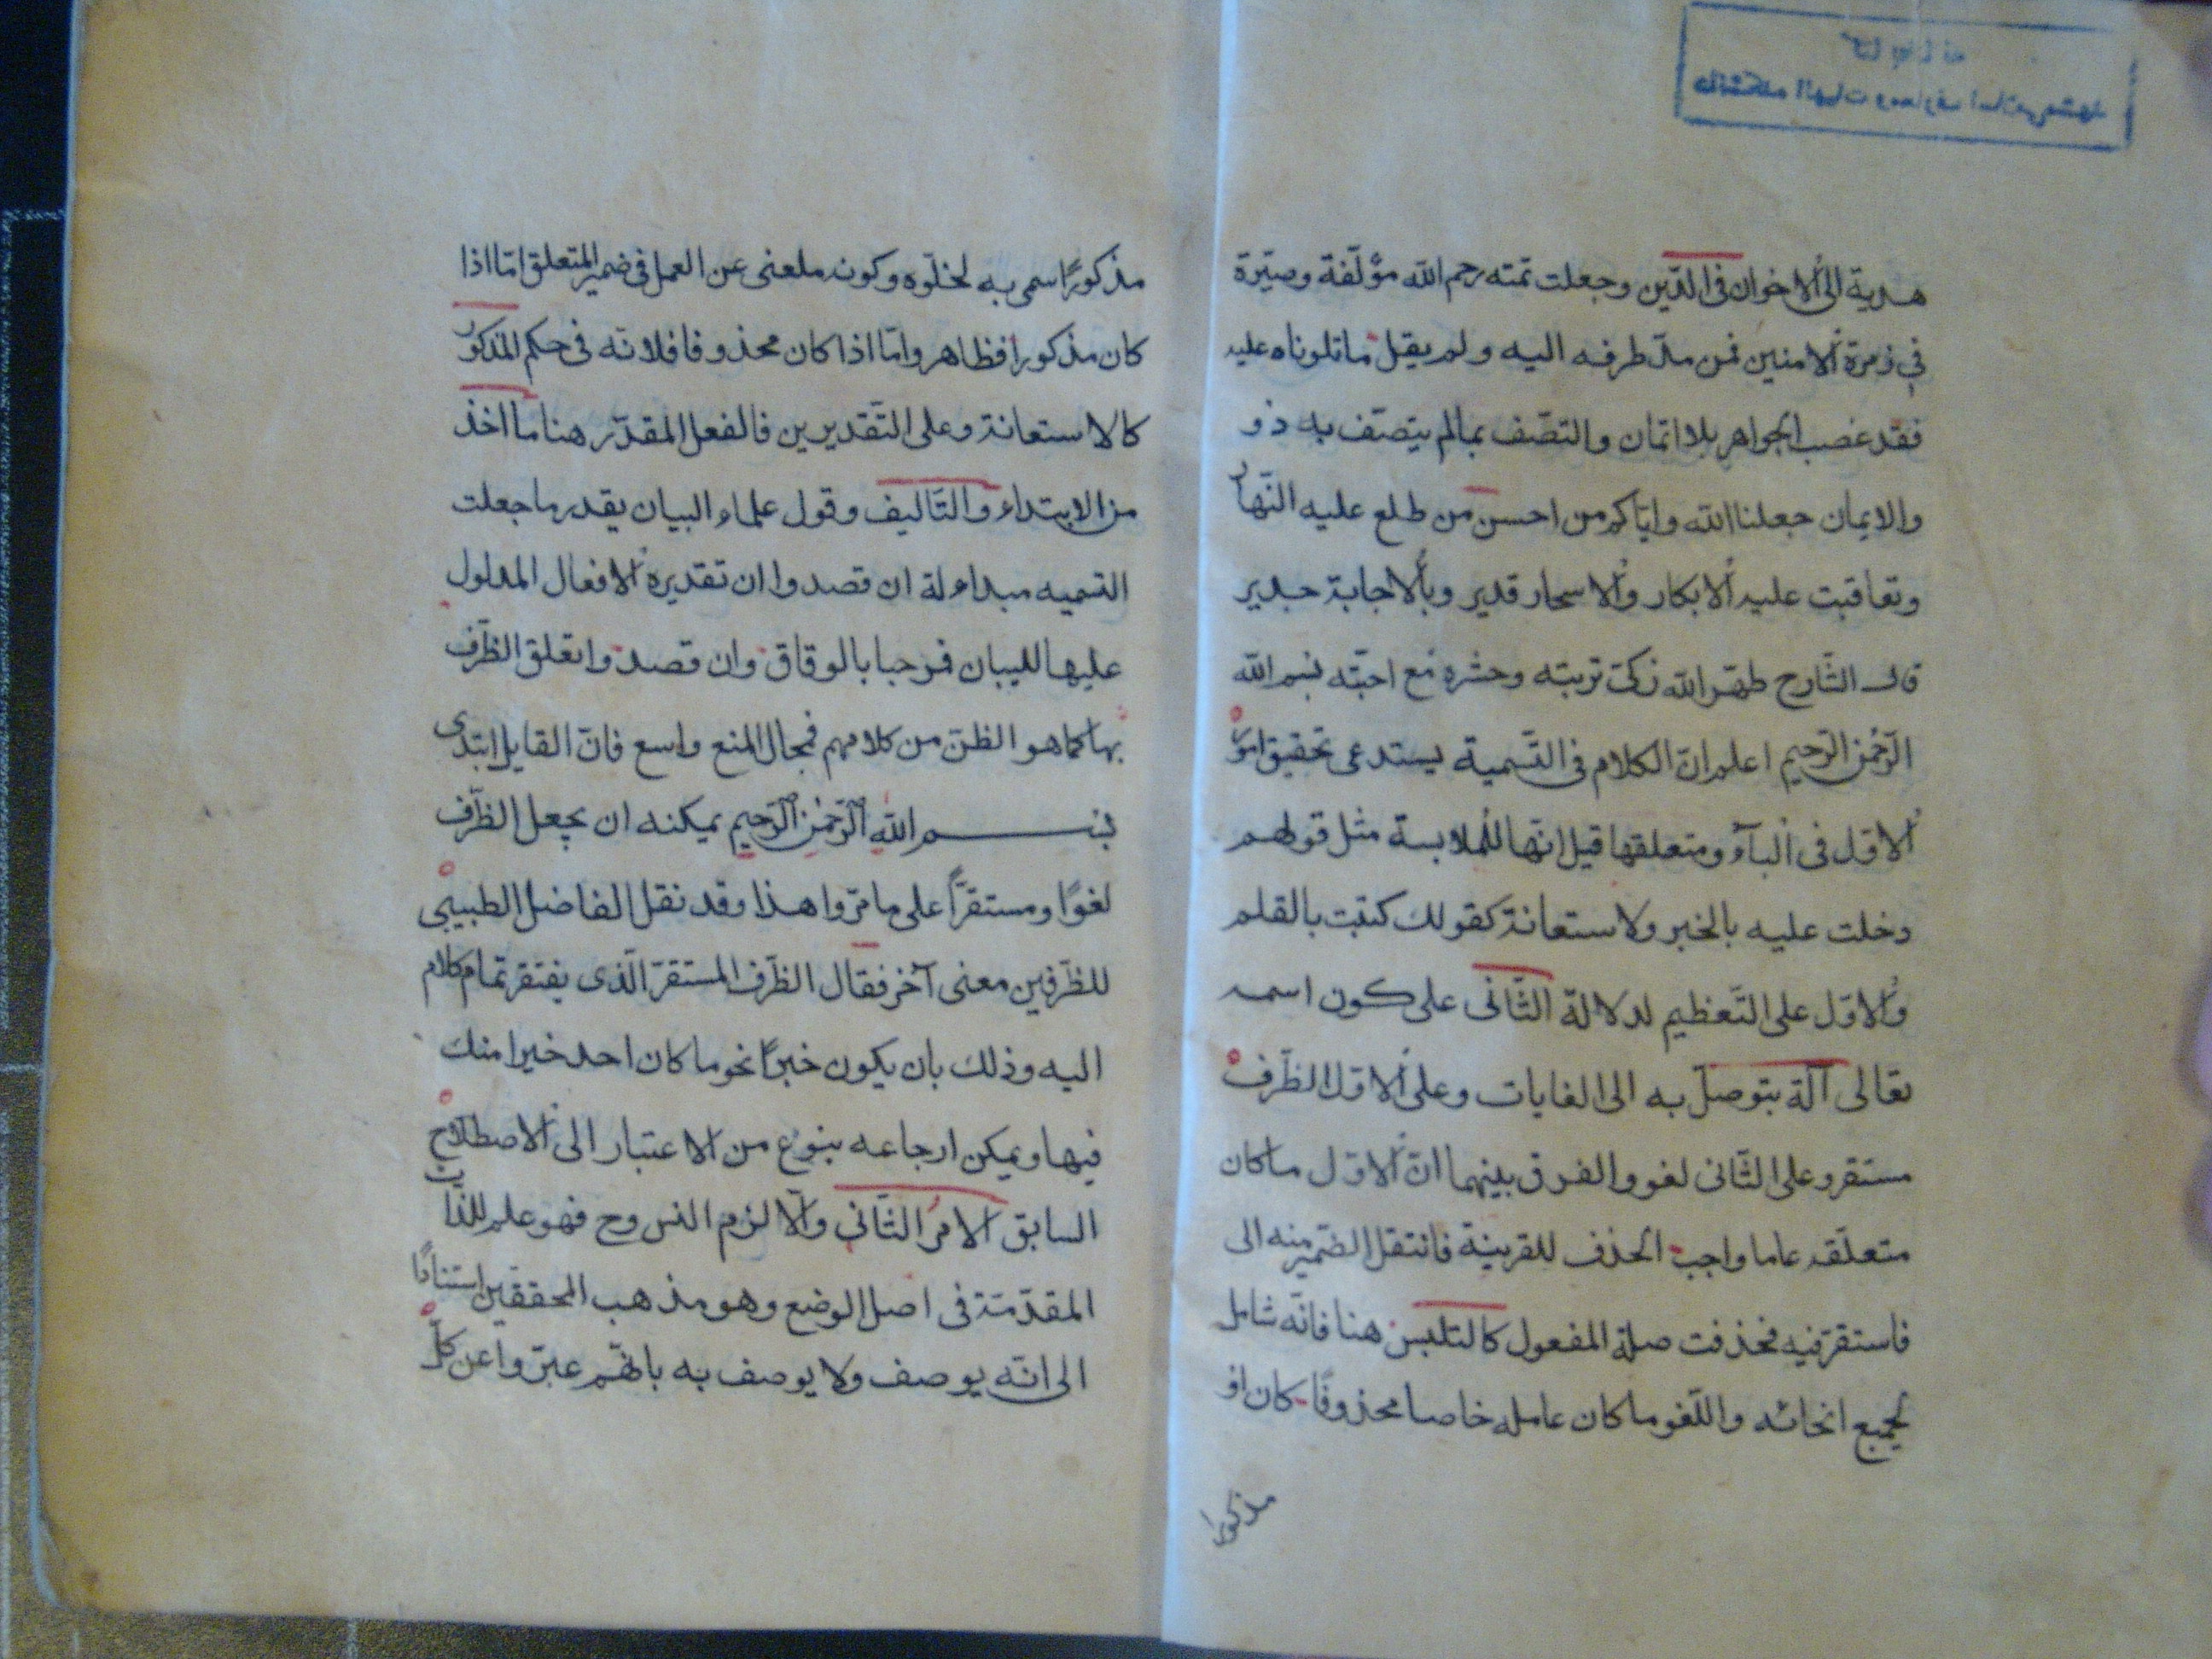 هدية الى الاخوان فى الدّين وجعلت تمته رحم الله مؤلّفة وصيّرة
في زمرة الامنين فمن مدّ طرفه اليه ولم يقل ما تلوناه عليه
فقد غصب الجواهر بلا اتمان والتصّف بمالم يتصّف به ذو
والايمان جعلنا الله وايّاكم من احسن من طلع عليه النّهار
وتعاقبت عليه الابكار والاسحار قدير وبالاجابة جدير
قال الشّارح طهّر الله زكىّ تربته وحشره مع احبّته بسم الله
الرّحمن الرّحيم اعلم انّ الكلام فى التّسمية يستدعى تحقيق امور
الاوّل فى البآء ومتعلقها قيل انّها للملابسة مثل قولهم
دخلت عليه بالخبر ولاستعانة كقولك كتبت بالقلم
والاوّل على التّعظيم لدلالة الثّانى على كون اسمه
تعالى آلة يتوصلّ به الى الغايات وعلى الاوّل الظّرف
مستقر وعلى الثّانى لغو والفرق بينهما انّ الاوّل ما كان
متعلّقه عاما واجب الحذف للقرينة فانتقل الضّمير منه الى
فاستقرّ فيه فحذفت صلة المفعول كالتلبس هنا فانّه شامل
لجميع انحائه واللّغو ما كان عامله خاصا محذوفًا كان او
مذكورا
مذكورًا سمى به لخلّوه وكونه ملغى عن العمل فى ضمير المتعلق امّا اذا
كان مذكورا فظاهر وامّا اذا كان محذوفا فلانه فى حكم المذكور
كالاستعانة وعلى التّقديرين فالفعل المقدّر هنا ما اخذ
من الابتداء والتّاليف وقول علماء البيان يقدر ما جعلت
التسميه مبداء له ان قصدوا ان تقديره الافعال المدلول
عليها للبيان فمرحبا بالوفاق وان قصدوا تعلق الظّرف
بها كما هو الظنّ من كلامهم فمجال المنع واسع فانّ القايل ابتدى
بسم الله الرّحمن الرّحيم يمكنه ان يجعل الظّرف
لغوًا ومستقرّاً على ما مرّ واهذا وقد نقل الفاضل الطيبى
للظّرفين معنى آخر فقال الظّرف المستقرّ الّذى يفتقر تمام كلام
اليه وذلك بان يكون خبراً نحو ما كان احد خيرا منك
فيها ويمكن ارجاعه بنوع من الاعتبار الى الاصطلاح
السابق الامر الثّانى والّا لزم فهو علم للذّات
المقدّمة فى اصل الوضع وهو مذهب المحققين استنادًا
الى انّه يوصف ولا يوصف به بانّهم عبرّوا عن كلّ